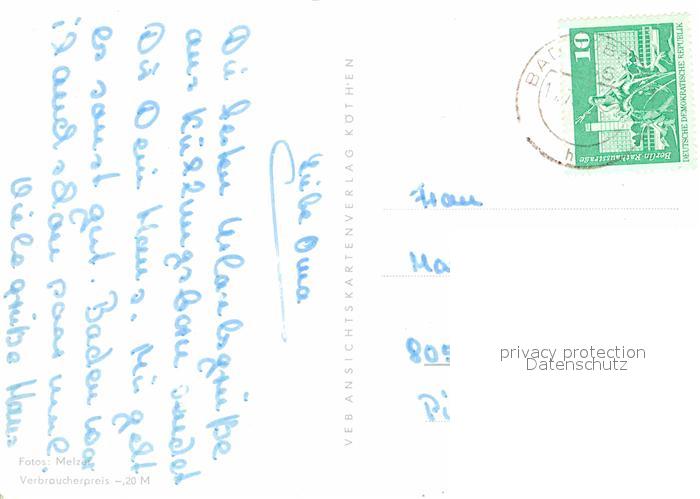 Liebe Oma
Die lieben Urlaubsgrüße
aus Kühlungsborn sendet
Dir Dein Hans. Mir geht
es sonst gut. Baden war
ich auch schon paar mal.
Viele grüße Hans
VEB ANSICHTSKARTENVERLAG KÖTHEN
Fotos: Melzer
Verbraucherpreis -,20 M
BAD
10
DEUTSCHE DEMOKRATISCHE REPUBLIK
Berlin Rathausstraße
Frau
Ha
805
Pi
privacy protection
Datenschutz